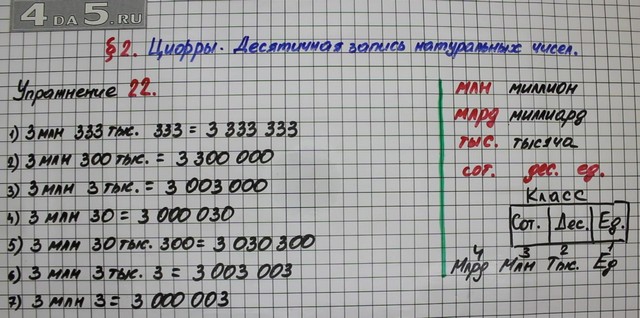 4 ДА 5.RU
§2. Цифры. Десятичная запись натуральных чисел.
Упражнение 22.
1) 3 млн 333 тыс. 333 = 3 333 333
2) 3 млн 300 тыс. = 3 300 000
3) 3 млн 3 тыс. = 3 003 000
4) 3 млн 30 = 3 000 030
5) 3 млн 30 тыс. 300 = 3 030 300
6) 3 млн 3 тыс. 3 = 3 003 003
7) 3 млн 3 = 3 000 003
млн миллион
млрд миллиард
тыс. тысяча
сот. дес. ед.
Класс
Сот. Дес. Ед.
4 3 2 1
Млрд Млн Тыс. Ед